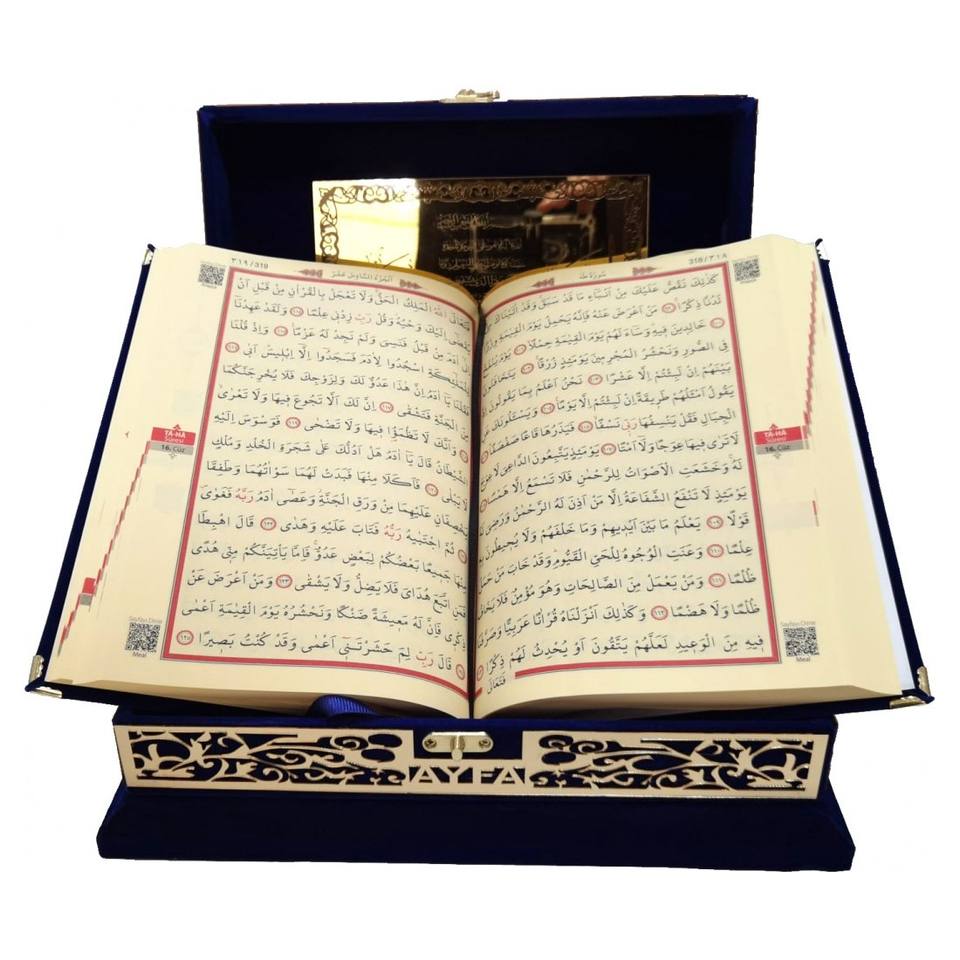 ٣١٨/318
سورة طه
كَذٰلِكَ نَقُصُّ عَلَيْكَ مِنْ اَنْبَٓاءِ مَا قَدْ سَبَقَ وَقَدْ اٰتَيْنَاكَ
لَدُنَّا ذِكْرًا ﴿٩٩﴾ مَنْ اَعْرَضَ عَنْهُ فَاِنَّهُ يَحْمِلُ يَوْمَ الْقِيٰمَةِ
خَالِدِينَ فِيهِ وَسَٓاءَ لَهُمْ يَوْمَ الْقِيٰمَةِ حِمْلًا ﴿١٠١﴾ يَوْمَ
فِي الصُّورِ وَنَحْشُرُ الْمُجْرِمِينَ يَوْمَئِذٍ زُرْقًا ﴿١٠٢﴾
بَيْنَهُمْ اِنْ لَبِثْتُمْ اِلَّا عَشْرًا ﴿١٠٣﴾ نَحْنُ اَعْلَمُ بِمَا يَقُولُونَ
يَقُولُ اَمْثَلُهُمْ طَرِيقَةً اِنْ لَبِثْتُمْ اِلَّا يَوْمًا ﴿١٠٤﴾ وَيَسْـَٔلُونَكَ عَنِ
الْجِبَالِ فَقُلْ يَنْسِفُهَا رَبِّي نَسْفًا ﴿١٠٥﴾ فَيَذَرُهَا قَاعًا صَفْصَفًا
لَا تَرٰى فِيهَا عِوَجًا وَلَٓا اَمْتًا ﴿١٠٧﴾ يَوْمَئِذٍ يَتَّبِعُونَ الدَّاعِيَ لَا عِوَجَ
لَهُ وَخَشَعَتِ الْاَصْوَاتُ لِلرَّحْمٰنِ فَلَا تَسْمَعُ اِلَّا هَمْسًا
يَوْمَئِذٍ لَا تَنْفَعُ الشَّفَاعَةُ اِلَّا مَنْ اَذِنَ لَهُ الرَّحْمٰنُ وَرَضِيَ
قَوْلًا ﴿١٠٩﴾ يَعْلَمُ مَا بَيْنَ اَيْدِيهِمْ وَمَا خَلْفَهُمْ وَلَا يُحِيطُونَ
عِلْمًا ﴿١١٠﴾ وَعَنَتِ الْوُجُوهُ لِلْحَيِّ الْقَيُّومِ وَقَدْ خَابَ مَنْ حَمَلَ
ظُلْمًا ﴿١١١﴾ وَمَنْ يَعْمَلْ مِنَ الصَّالِحَاتِ وَهُوَ مُؤْمِنٌ فَلَا يَخَافُ
ظُلْمًا وَلَا هَضْمًا ﴿١١٢﴾ وَكَذٰلِكَ اَنْزَلْنَاهُ قُرْاٰنًا عَرَبِيًّا وَصَرَّفْنَا
فِيهِ مِنَ الْوَعِيدِ لَعَلَّهُمْ يَتَّقُونَ اَوْ يُحْدِثُ لَهُمْ ذِكْرًا
فَتَعَالَى
TA-HA
Sûresi
16. Cüz
Sayfayı Dinle
Meal
٣١٩/319
الجزء السادس عشر
فَتَعَالَى اللّٰهُ الْمَلِكُ الْحَقُّ وَلَا تَعْجَلْ بِالْقُرْاٰنِ مِنْ قَبْلِ اَنْ
يُقْضٰٓى اِلَيْكَ وَحْيُهُ وَقُلْ رَبِّ زِدْنِي عِلْمًا ﴿١١٤﴾ وَلَقَدْ عَهِدْنَٓا
اِلٰٓى اٰدَمَ مِنْ قَبْلُ فَنَسِيَ وَلَمْ نَجِدْ لَهُ عَزْمًا ﴿١١٥﴾ وَاِذْ قُلْنَا
لِلْمَلٰٓئِكَةِ اسْجُدُوا لِاٰدَمَ فَسَجَدُٓوا اِلَّٓا اِبْلِيسَ اَبٰى ﴿١١٦﴾
فَقُلْنَا يَٓا اٰدَمُ اِنَّ هٰذَا عَدُوٌّ لَكَ وَلِزَوْجِكَ فَلَا يُخْرِجَنَّكُمَا
مِنَ الْجَنَّةِ فَتَشْقٰى ﴿١١٧﴾ اِنَّ لَكَ اَلَّا تَجُوعَ فِيهَا وَلَا تَعْرٰى
وَاَنَّكَ لَا تَظْمَؤُا فِيهَا وَلَا تَضْحٰى ﴿١١٩﴾ فَوَسْوَسَ اِلَيْهِ
الشَّيْطَانُ قَالَ يَٓا اٰدَمُ هَلْ اَدُلُّكَ عَلٰى شَجَرَةِ الْخُلْدِ وَمُلْكٍ
لَا يَبْلٰى ﴿١٢٠﴾ فَاَكَلَا مِنْهَا فَبَدَتْ لَهُمَا سَوْاٰتُهُمَا وَطَفِقَا
يَخْصِفَانِ عَلَيْهِمَا مِنْ وَرَقِ الْجَنَّةِ وَعَصٰٓى اٰدَمُ رَبَّهُ فَغَوٰى
ثُمَّ اجْتَبٰيهُ رَبُّهُ فَتَابَ عَلَيْهِ وَهَدٰى ﴿١٢٢﴾ قَالَ اهْبِطَا
مِنْهَا جَمِيعًا بَعْضُكُمْ لِبَعْضٍ عَدُوٌّ فَاِمَّا يَأْتِيَنَّكُمْ مِنِّي هُدًى
فَمَنِ اتَّبَعَ هُدَايَ فَلَا يَضِلُّ وَلَا يَشْقٰى ﴿١٢٣﴾ وَمَنْ اَعْرَضَ عَنْ
ذِكْرِي فَاِنَّ لَهُ مَعِيشَةً ضَنْكًا وَنَحْشُرُهُ يَوْمَ الْقِيٰمَةِ اَعْمٰى
قَالَ رَبِّ لِمَ حَشَرْتَنِٓي اَعْمٰى وَقَدْ كُنْتُ بَصِيرًا ﴿١٢٥﴾
TA-HA
Sûresi
16. Cüz
Sayfayı Dinle
Meal
AYFA